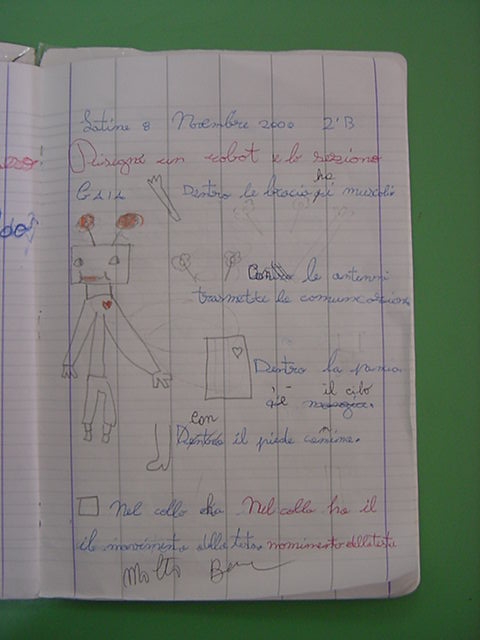 Latina 8 Novembre 2000 2ªB
Disegna un robot e lo seziono
GLIL
Dentro le bracia ha muscoli
Con le antenni
trasmette le comunicazioni
Dentro la pancia
c'è il cibo
Con il piede camina.
Nel collo cha Nel collo ha il
il movimento della testa. momimento della testa
Molto Bene